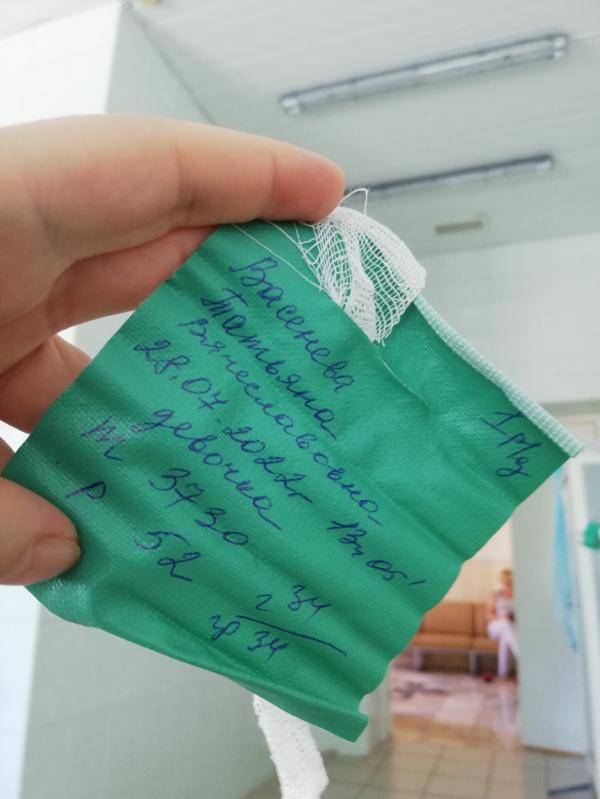 Васенева
Татьяна
Вячеславовна
28.07.2022г 13ч 05'
девочка
m 3730
р 52
г 34
гр 34